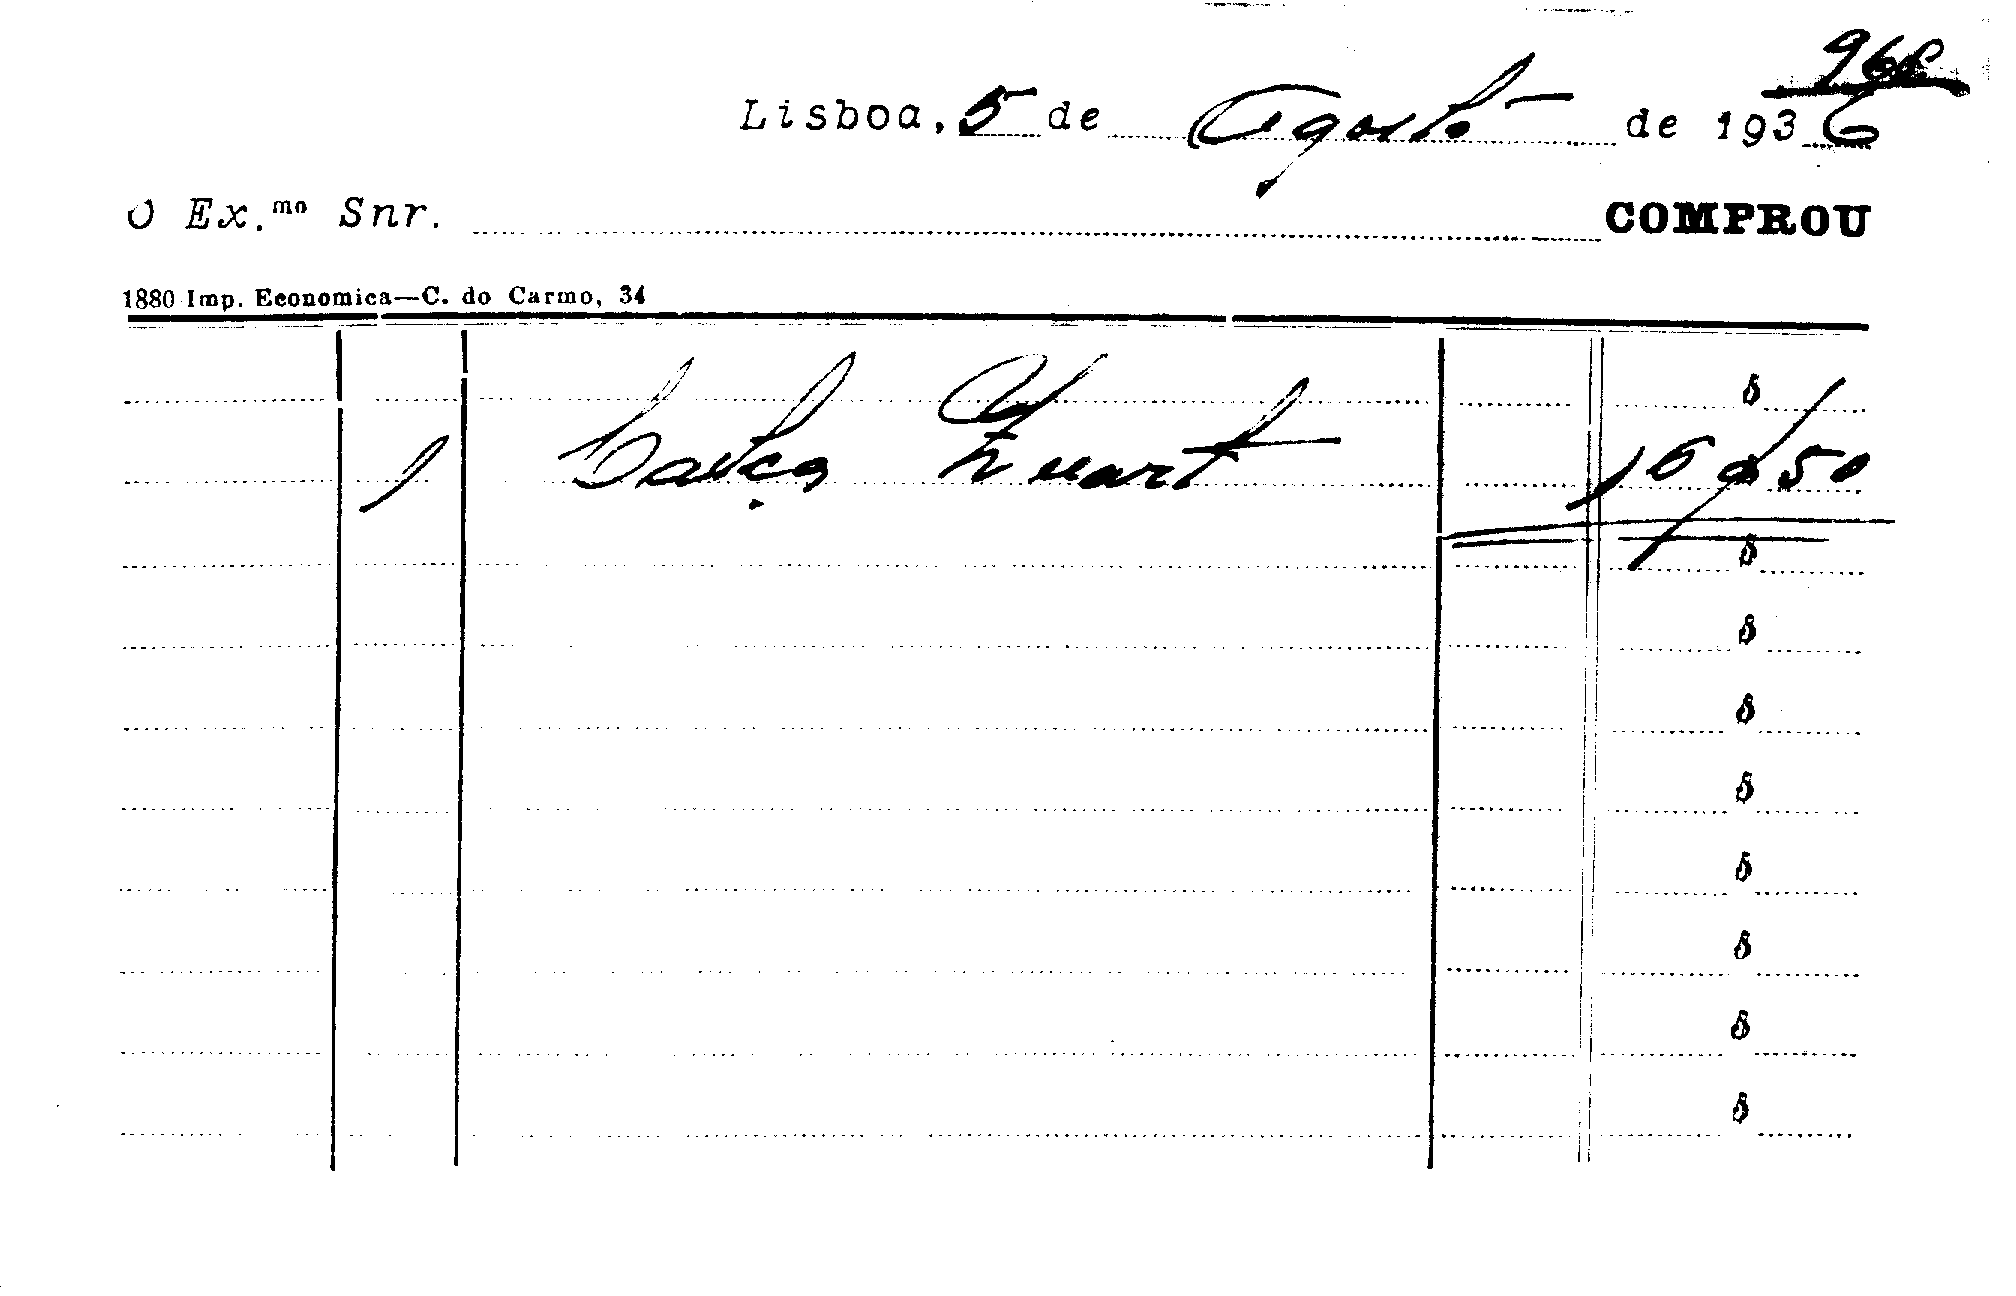 968
Lisboa, 5 de Agosto de 1936
O Ex.mo Snr. COMPROU
1880 Imp. Economica—C. do Carmo, 34
$
1 16$50
$
$
$
$
$
$
$
$